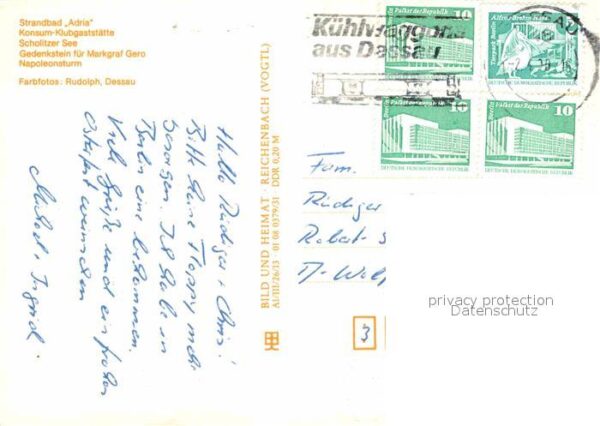 Strandbad „Adria"
Konsum-Klubgaststätte
Scholitzer See
Gedenkstein für Markgraf Gero
Napoleonsturm
Farbfotos: Rudolph, Dessau
Hallo Rüdiger + Chris!
Bitte keine Floppy mehr
besorgen. Ich habe in
Berlin eine bekommen.
Viele Grüße und ein frohes
Osterfest wünschen
Ingrid.
BILD UND HEIMAT · REICHENBACH (VOGTL)
A1/III/26/13 01 08 0379/31 DDR 0,20 M
Kühlwaggons
aus Dessau
Berlin Palast der Republik 10
DEUTSCHE DEMOKRATISCHE REPUBLIK
Tierpark Berlin
DEUTSCHE DEMOKRATISCHE REPUBLIK
Berlin Palast der Republik 10
DEUTSCHE DEMOKRATISCHE REPUBLIK
Berlin Palast der Republik 10
DEUTSCHE DEMOKRATISCHE REPUBLIK
Fam.
Rüdiger
Robert-S
3
privacy protection
Datenschutz